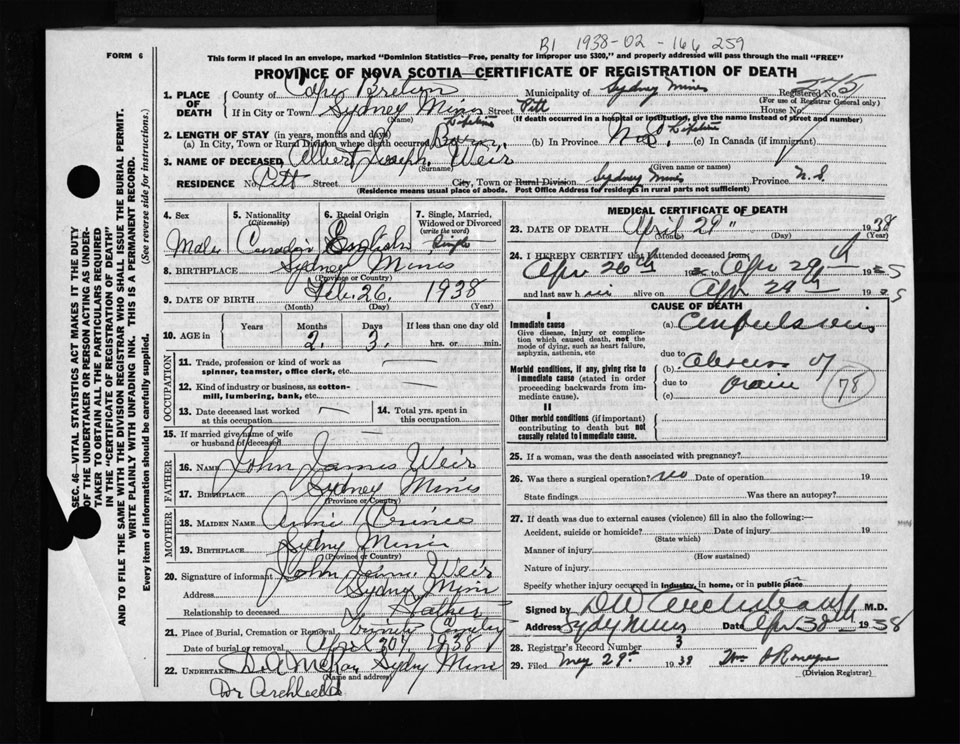 B1 1938-02-166 259
FORM 6
This form if placed in an envelope, marked "Dominion Statistics—Free, penalty for improper use $300," and properly addressed will pass through the mail "FREE"
PROVINCE OF NOVA SCOTIA—CERTIFICATE OF REGISTRATION OF DEATH
SEC. 46—VITAL STATISTICS ACT MAKES IT THE DUTY
OF THE UNDERTAKER OR PERSON ACTING AS UNDER-
TAKER TO OBTAIN ALL THE PARTICULARS REQUIRED
IN THE "CERTIFICATE OF REGISTRATION OF DEATH"
AND TO FILE THE SAME WITH THE DIVISION REGISTRAR WHO SHALL ISSUE THE BURIAL PERMIT.
WRITE PLAINLY WITH UNFADING INK. THIS IS A PERMANENT RECORD.
Every item of information should be carefully supplied. (See reverse side for instructions.)
1. PLACE OF DEATH
County of Cape Breton Municipality of Sydney Mines Registered No.
(For use of Registrar General only)
If in City or Town Sydney Mines Street Pitt House No.
(Name) (If death occurred in a hospital or institution, give the name instead of street and number)
2. LENGTH OF STAY (in years, months and days)
(a) In City, Town or Rural Division where death occurred Lifetime (b) In Province N.S. Lifetime (c) In Canada (if immigrant)
3. NAME OF DECEASED Albert Joseph Weir
(Surname) (Given name or names)
RESIDENCE No. Pitt Street City, Town or Rural Division Sydney Mines Province N.S.
(Residence means usual place of abode. Post Office Address for residents in rural parts not sufficient)
4. Sex 5. Nationality (Citizenship) 6. Racial Origin 7. Single, Married, Widowed or Divorced (write the word)
Male Canadian English Single
8. BIRTHPLACE Sydney Mines
(Province or Country)
9. DATE OF BIRTH Feb. 26. 1938
(Month) (Day) (Year)
10. AGE in Years Months Days If less than one day old
2. 3. hrs. or min.
OCCUPATION
11. Trade, profession or kind of work as
spinner, teamster, office clerk, etc. —
12. Kind of industry or business, as cotton-
mill, lumbering, bank, etc. —
13. Date deceased last worked
at this occupation —
14. Total yrs. spent in
this occupation
15. If married give name of wife
or husband of deceased —
FATHER
16. NAME John James Weir
17. BIRTHPLACE Sydney Mines
(Province or Country)
MOTHER
18. MAIDEN NAME Annie Prince
19. BIRTHPLACE Sydney Mines
(Province or Country)
20. Signature of informant John James Weir
Address Sydney Mines
Relationship to deceased Father
21. Place of Burial, Cremation or Removal Trinity
Date of burial or removal April 30th 1938
22. UNDERTAKER D. A. McKay Sydney Mines
(Name and address)
MEDICAL CERTIFICATE OF DEATH
23. DATE OF DEATH April 29" 1938
(Month) (Day) (Year)
24. I HEREBY CERTIFY that I attended deceased from
Apr 26th 19 to Apr 29th 19
and last saw h alive on Apr 29th 19
CAUSE OF DEATH
I
Immediate cause
Give disease, injury or complica-
tion which caused death, not the
mode of dying, such as heart failure,
asphyxia, asthenia, etc
(a) Convulsions
due to
Morbid conditions, if any, giving rise to
immediate cause (stated in order
proceeding backwards from im-
mediate cause).
(b) abscess of
due to brain
(c)
78
II
Other morbid conditions (if important)
contributing to death but not
causally related to immediate cause.
25. If a woman, was the death associated with pregnancy?
26. Was there a surgical operation? no Date of operation 19
State findings Was there an autopsy?
27. If death was due to external causes (violence) fill in also the following:—
Accident, suicide or homicide? Date of injury 19
(State which)
Manner of injury
(How sustained)
Nature of injury
Specify whether injury occurred in industry, in home, or in public place
Signed by M.D.
Address Sydney Mines Date Apr 30th 1938
28. Registrar's Record Number 3
29. Filed May 29th 1938
(Division Registrar)